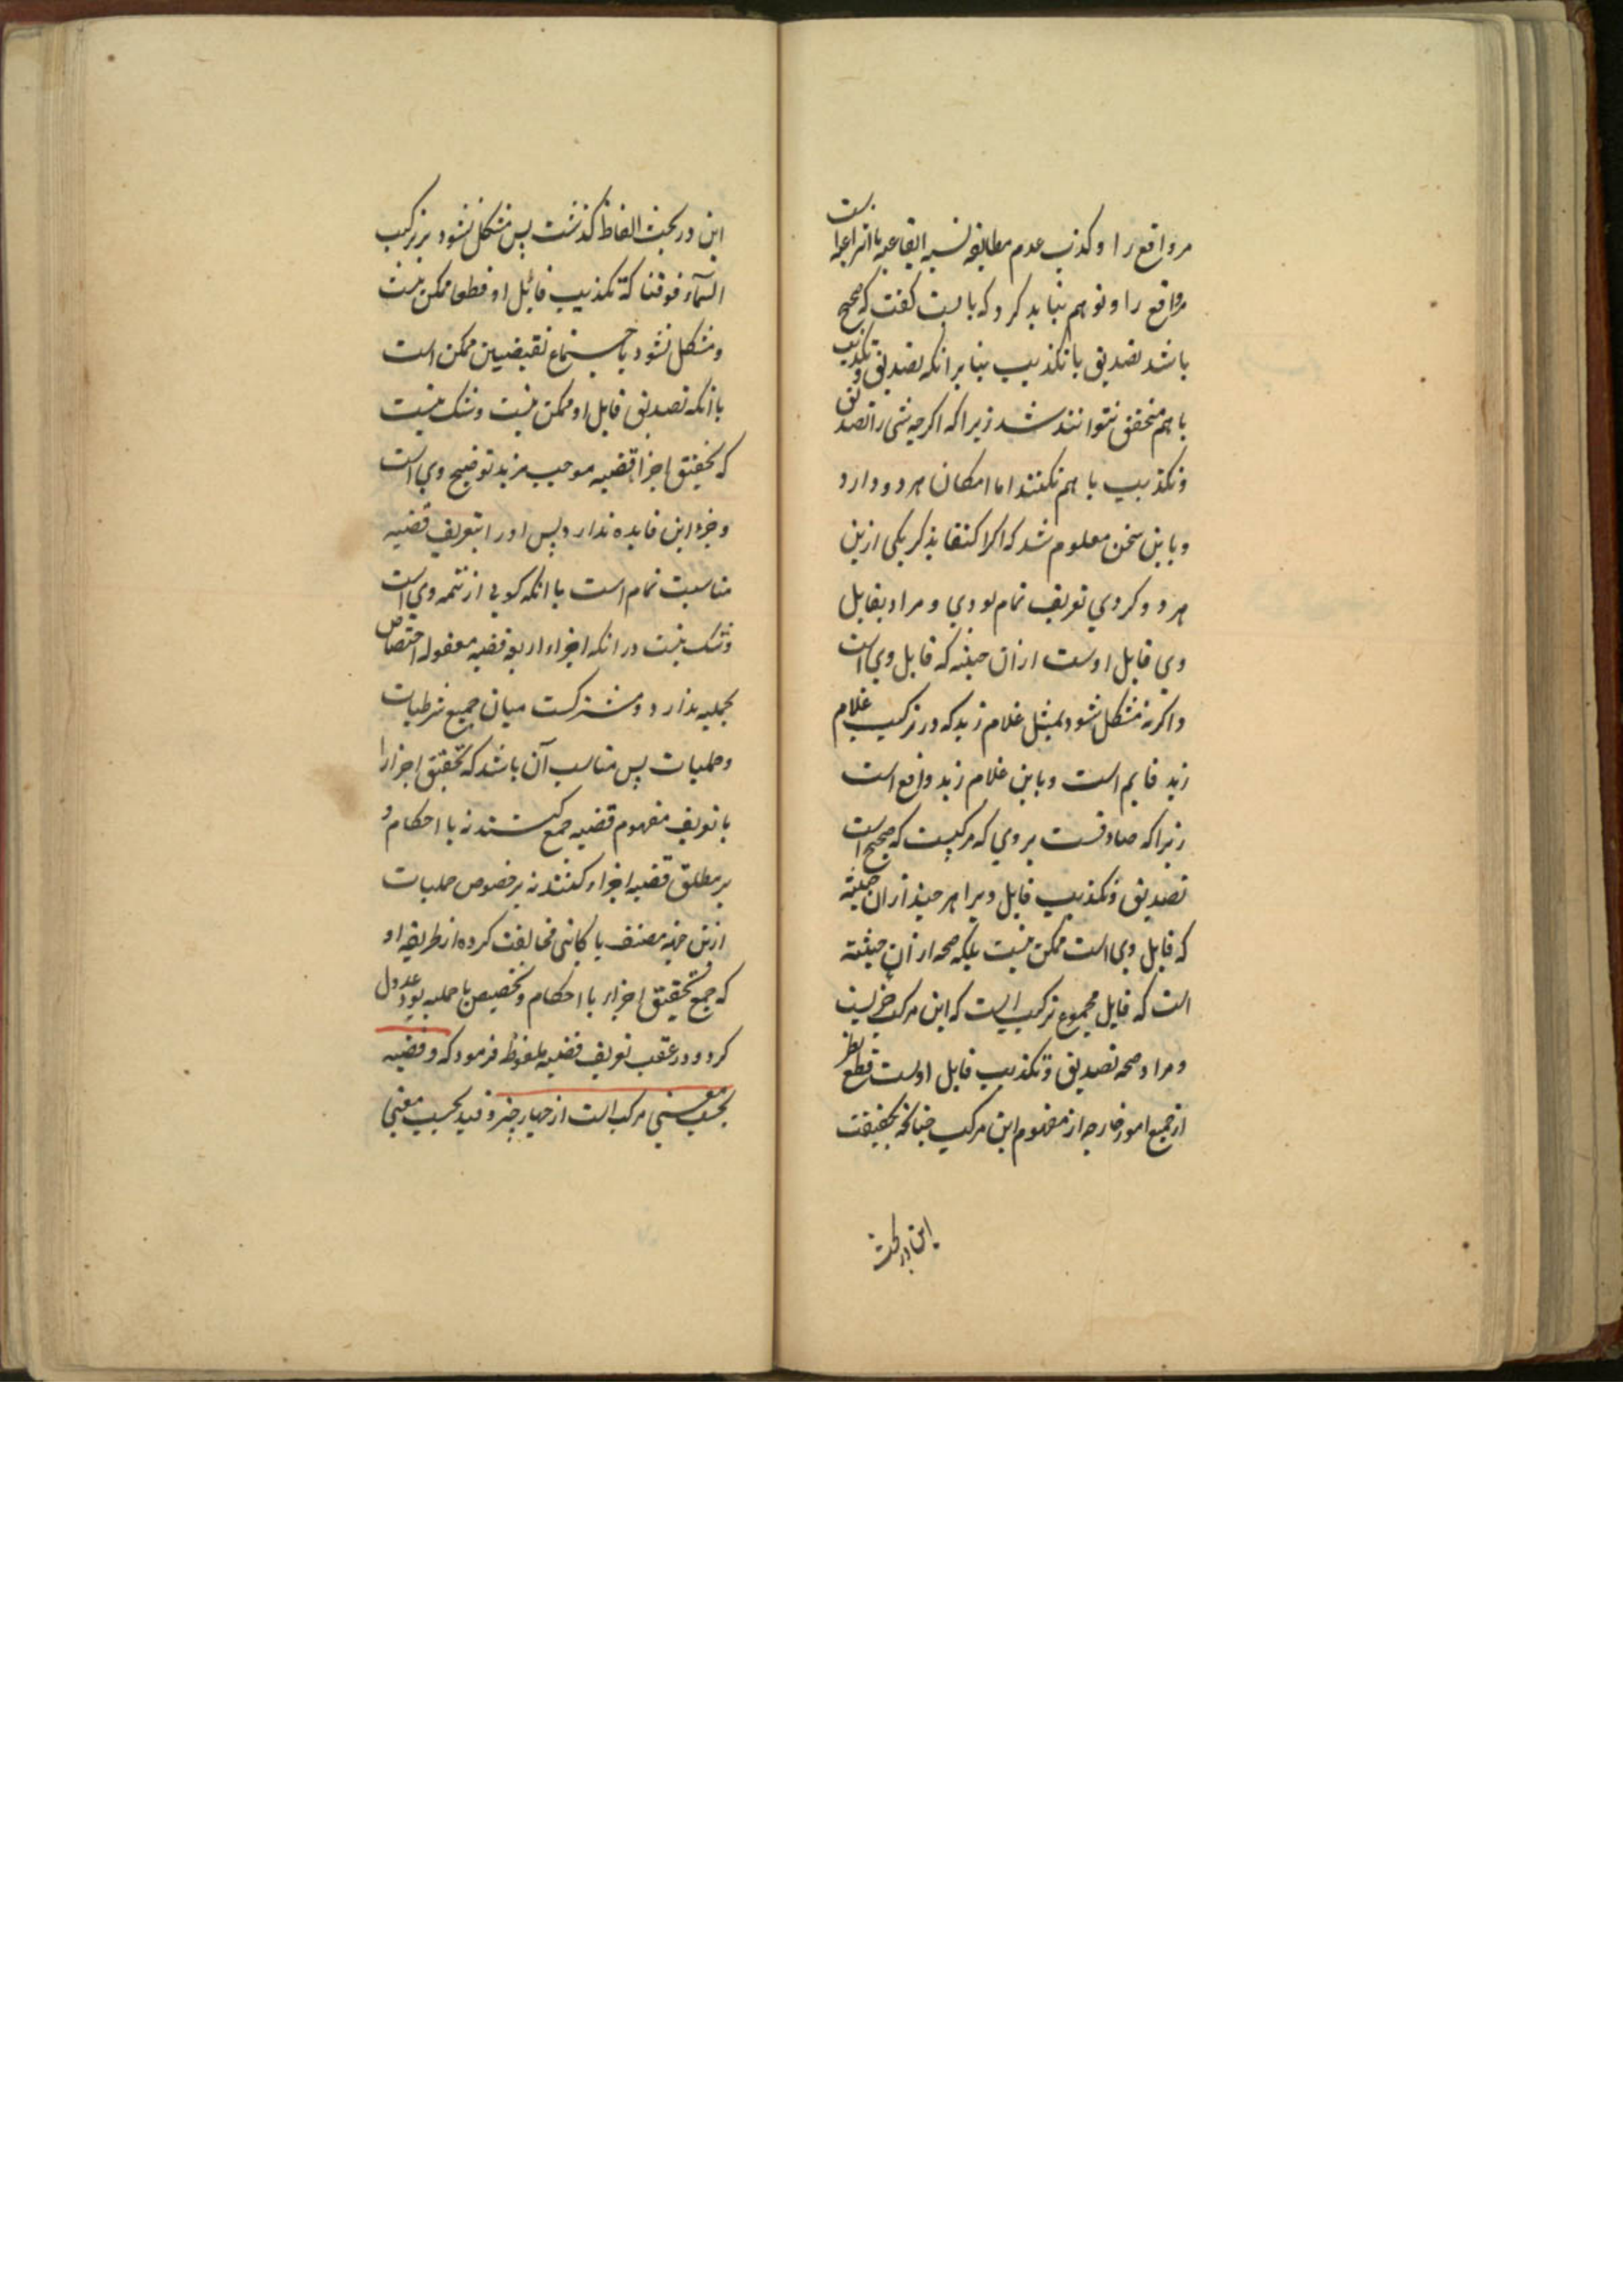 مر واقع را و کذب عدم مطابقه نسبه ایقاعیه یا انتزاعیه است
مر واقع را و توهم نباید کرد که بایست گفت که صحیح
باشد تصدیق یا تکذیب بنابر انکه تصدیق و تکذیب
با هم متحقق نتوانند شد زیرا که اکرچه شی را تصدیق
و تکذیب با هم نکنند اما امکان هر دو دارد
و باین سخن معلوم شد که اکر اکتفا بذکر یکی ازین
هر دو کردی تعریف تمام بودی و مراد بقایل
وی قایل اوست از ان حیثیه که قایل وی است
و اکر نه مشکل شود بمثل غلام زید که در ترکیب غلام
زید قایم است و باین غلام زید واقع است
زیرا که صادقست بر وی که مرکبیست که صحیح است
تصدیق و تکذیب قایل ویرا هر چند از ان حیثیته
که قایل وی است ممکن نیست بلکه صحه از ان حیثیته
است که قایل مجموع ترکیب است که این مرکب جزء
و مراد صحه تصدیق و تکذیب قایل اوست قطع نظر
از جمیع امور خارجه از مفهوم این مرکب چنانچه بحقیقت
این در بحث
این در بحث الفاظ کذشت پس مشکل نشود بر ترکیب
السماء فوقنا که تکذیب قائل او قطعا ممکن نیست
و مشکل نشود باجتماع نقیضین ممکن است
با انکه تصدیق قایل او ممکن نیست و شک نیست
که تحقیق اجزاء قضیه موجب مزید توضیح وی است
و جز این فایده ندارد پس او را بتعریف قضیه
مناسبت تمام است با انکه کویی از تتمه وی است
و شک نیست در انکه اجزاء اربعه قضیه معقوله اختصاص
بحملیه ندارد و مشترکست میان جمیع شرطیات
و حملیات پس مناسب آن باشد که تحقیق اجزا را
با تعریف مفهوم قضیه جمع کنند نه با احکام و
بر مطلق قضیه اجراء کنند نه بر خصوص حملیات
ازین جهه مصنف با کاتبی مخالفت کرده از طریقه او
که جمع تحقیق اجزاء با احکام و تخصیص با حملیه بود عدول
کرد و در عقب تعریف قضیه ملفوظ فرمود که و قضیه
بحسب معنی مرکب است از چهار چیز و قید بحسب معنی